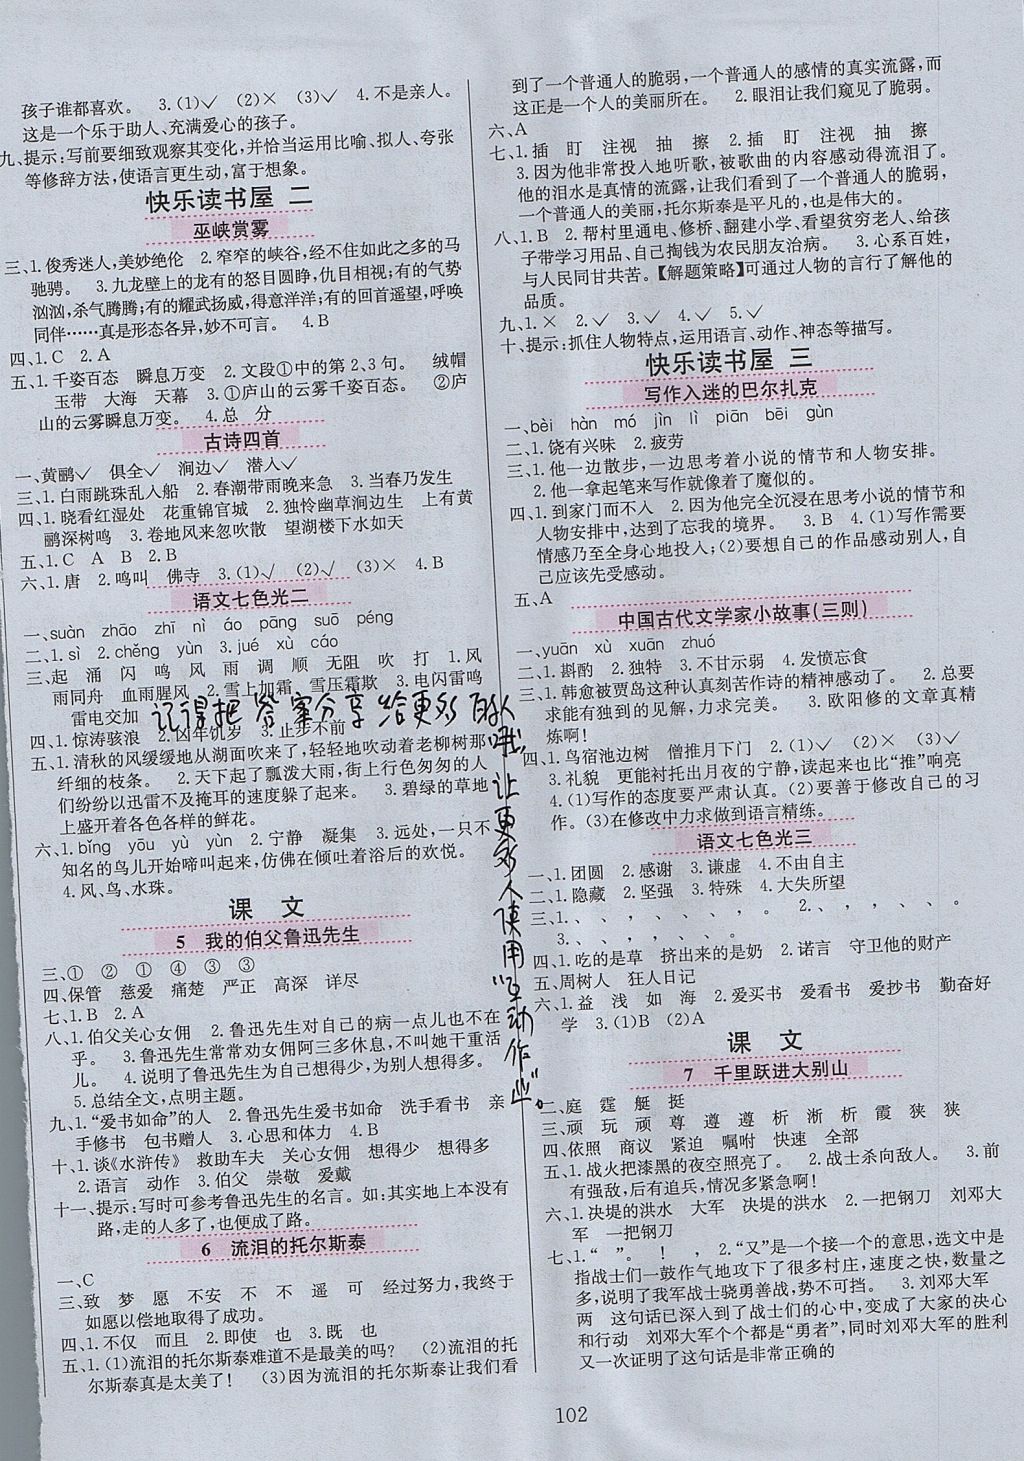 孩子谁都喜欢。 3.(1)✓ (2)× (3)✓ 4.不是亲人。
这是一个乐于助人、充满爱心的孩子。
九、提示:写前要细致观察其变化,并恰当运用比喻、拟人、夸张
等修辞方法,使语言更生动,富于想象。
快乐读书屋 二
巫峡赏雾
三、1.俊秀迷人,美妙绝伦 2.窄窄的峡谷,经不住如此之多的马
驰骋。 3.九龙壁上的龙有的怒目圆睁,仇目相视;有的气势
汹汹,杀气腾腾;有的耀武扬威,得意洋洋;有的回首遥望,呼唤
同伴……真是形态各异,妙不可言。 4.B
四、1.C 2.A
五、1.千姿百态 瞬息万变 2.文段①中的第2、3句。 绒帽
玉带 大海 天幕 3.①庐山的云雾千姿百态。 ②庐
山的云雾瞬息万变。 4.总 分
古诗四首
一、黄鹂✓ 俱全✓ 涧边✓ 潜人✓
三、1.白雨跳珠乱入船 2.春潮带雨晚来急 3.当春乃发生
四、1.晓看红湿处 花重锦官城 2.独怜幽草涧边生 上有黄
鹂深树鸣 3.卷地风来忽吹散 望湖楼下水如天
五、1.C A B 2.B
六、1.唐 2.鸣叫 佛寺 3.(1)✓ (2)✓ (3)× 4.B
语文七色光二
一、suàn zhāo zhī nì áo pāng suō péng
二、1.sì 2.chěng yùn 3.jué xù cáo
三、起 涌 闪 鸣 风 雨 调 顺 无阻 吹 打 1.风
雨同舟 血雨腥风 2.雪上加霜 雪压霜欺 3.电闪雷鸣
雷电交加
四、1.惊涛骇浪 2.凶年饥岁 3.止步不前
五、1.清秋的风缓缓地从湖面吹来了,轻轻地吹动着老柳树那
纤细的枝条。 2.天下起了瓢泼大雨,街上行色匆匆的人
们纷纷以迅雷不及掩耳的速度躲了起来。 3.碧绿的草地
上盛开着各色各样的鲜花。
六、1.bǐng yōu yù yùn 2.宁静 凝集 3.远处,一只不
知名的鸟儿开始啼叫起来,仿佛在倾吐着浴后的欢悦。
4.风、鸟、水珠。
课 文
5 我的伯父鲁迅先生
三、① ② ① ④ ③ ③
四、保管 慈爱 痛楚 严正 高深 详尽
七、1.B 2.A
八、1.伯父关心女佣 2.鲁迅先生对自己的病一点儿也不在
乎。 3.鲁迅先生常常劝女佣阿三多休息,不叫她干重活
儿。 4.说明了鲁迅先生为自己想得少,为别人想得多。
5.总结全文,点明主题。
九、1.“爱书如命”的人 2.鲁迅先生爱书如命 洗手看书 亲
手修书 包书赠人 3.心思和体力 4.B
十、1.谈《水浒传》 救助车夫 关心女佣 想得少 想得多
2.语言 动作 3.伯父 崇敬 爱戴
十一、提示:写时可参考鲁迅先生的名言。如:其实地上本没有
路,走的人多了,也便成了路。
6 流泪的托尔斯泰
一、C
三、致 梦 愿 不安 不 不 遥 可 经过努力,我终于
如愿以偿地取得了成功。
四、1.不仅 而且 2.即使 也 3.既 也
五、1.(1)流泪的托尔斯泰难道不是最美的吗? (2)流泪的托
尔斯泰真是太美了! (3)因为流泪的托尔斯泰让我们看
到了一个普通人的脆弱,一个普通人的感情的真实流露,而
这正是一个人的美丽所在。 2.眼泪让我们窥见了脆弱。
六、A
七、1.插 盯 注视 抽 擦 2.插 盯 注视 抽 擦
3.因为他非常投入地听歌,被歌曲的内容感动得流泪了。
他的泪水是真情的流露,让我们看到了一个普通人的脆弱,
一个普通人的美丽,托尔斯泰是平凡的,也是伟大的。
八、1.B 2.帮村里通电、修桥、翻建小学、看望贫穷老人、给孩
子带学习用品、自己掏钱为农民朋友治病。 3.心系百姓,
与人民同甘共苦。【解题策略】可通过人物的言行了解他的
品质。
九、1.× 2.✓ 3.✓ 4.✓ 5.✓
十、提示:抓住人物特点,运用语言、动作、神态等描写。
快乐读书屋 三
写作入迷的巴尔扎克
一、bèi hàn mó jìn lì piān bēi gùn
二、1.饶有兴味 2.疲劳
三、1.他一边散步,一边思考着小说的情节和人物安排。
2.他一拿起笔来写作就像着了魔似的。
四、1.到家门而不入 2.因为他完全沉浸在思考小说的情节和
人物安排中,达到了忘我的境界。 3.B 4.(1)写作需要
情感乃至全身心地投入;(2)要想自己的作品感动别人,自
己应该先受感动。
五、A
中国古代文学家小故事(三则)
一、yuān xù xuān zhuó
二、1.斟酌 2.独特 3.不甘示弱 4.发愤忘食
三、1.韩愈被贾岛这种认真刻苦作诗的精神感动了。 2.总要
求能有独到的见解,力求完美。 3.欧阳修的文章真精
炼啊!
四、1.鸟宿池边树 僧推月下门 2.(1)✓ (2)× (3)✓
3.礼貌 更能衬托出月夜的宁静,读起来也比“推”响亮
4.(1)写作的态度要严肃认真。(2)要善于修改自己的习
作。(3)在修改中力求做到语言精练。
语文七色光三
一、1.团圆 2.感谢 3.谦虚 4.不由自主
二、1.隐藏 2.坚强 3.特殊 4.大失所望
三、1.、 、 , , , 。 2.、 , , 、 。
3.、 、 , , , 。
四、1.吃的是草 挤出来的是奶 2.诺言 守卫他的财产
五、周树人 狂人日记
六、1.益 浅 如 海 2.爱买书 爱看书 爱抄书 勤奋好
学 3.(1)B (2)A
课 文
7 千里跃进大别山
二、庭 霆 艇 挺
三、顽 玩 顽 尊 遵 遵 析 淅 析 霞 狭 狭
四、依照 商议 紧迫 嘱咐 快速 全部
五、1.战火把漆黑的夜空照亮了。 2.战士杀向敌人。 3.前
有强敌,后有追兵,情况多紧急啊!
六、1.决堤的洪水 大军 决堤的洪水 2.一把钢刀 刘邓大
军 一把钢刀
七、1.“ ”。 ! , 2.“又”是一个接一个的意思,选文中是
指战士们一鼓作气地攻下了很多村庄,速度之快,数量之
多,说明了我军战士骁勇善战,势不可挡。 3.刘邓大军
两 这句话已深入到了战士们的心中,变成了大家的决心
和行动 刘邓大军个个都是“勇者”,同时刘邓大军的胜利
又一次证明了这句话是非常正确的
102
记得把答案分享给更多的人哦,让更多人使用“互动作业”。